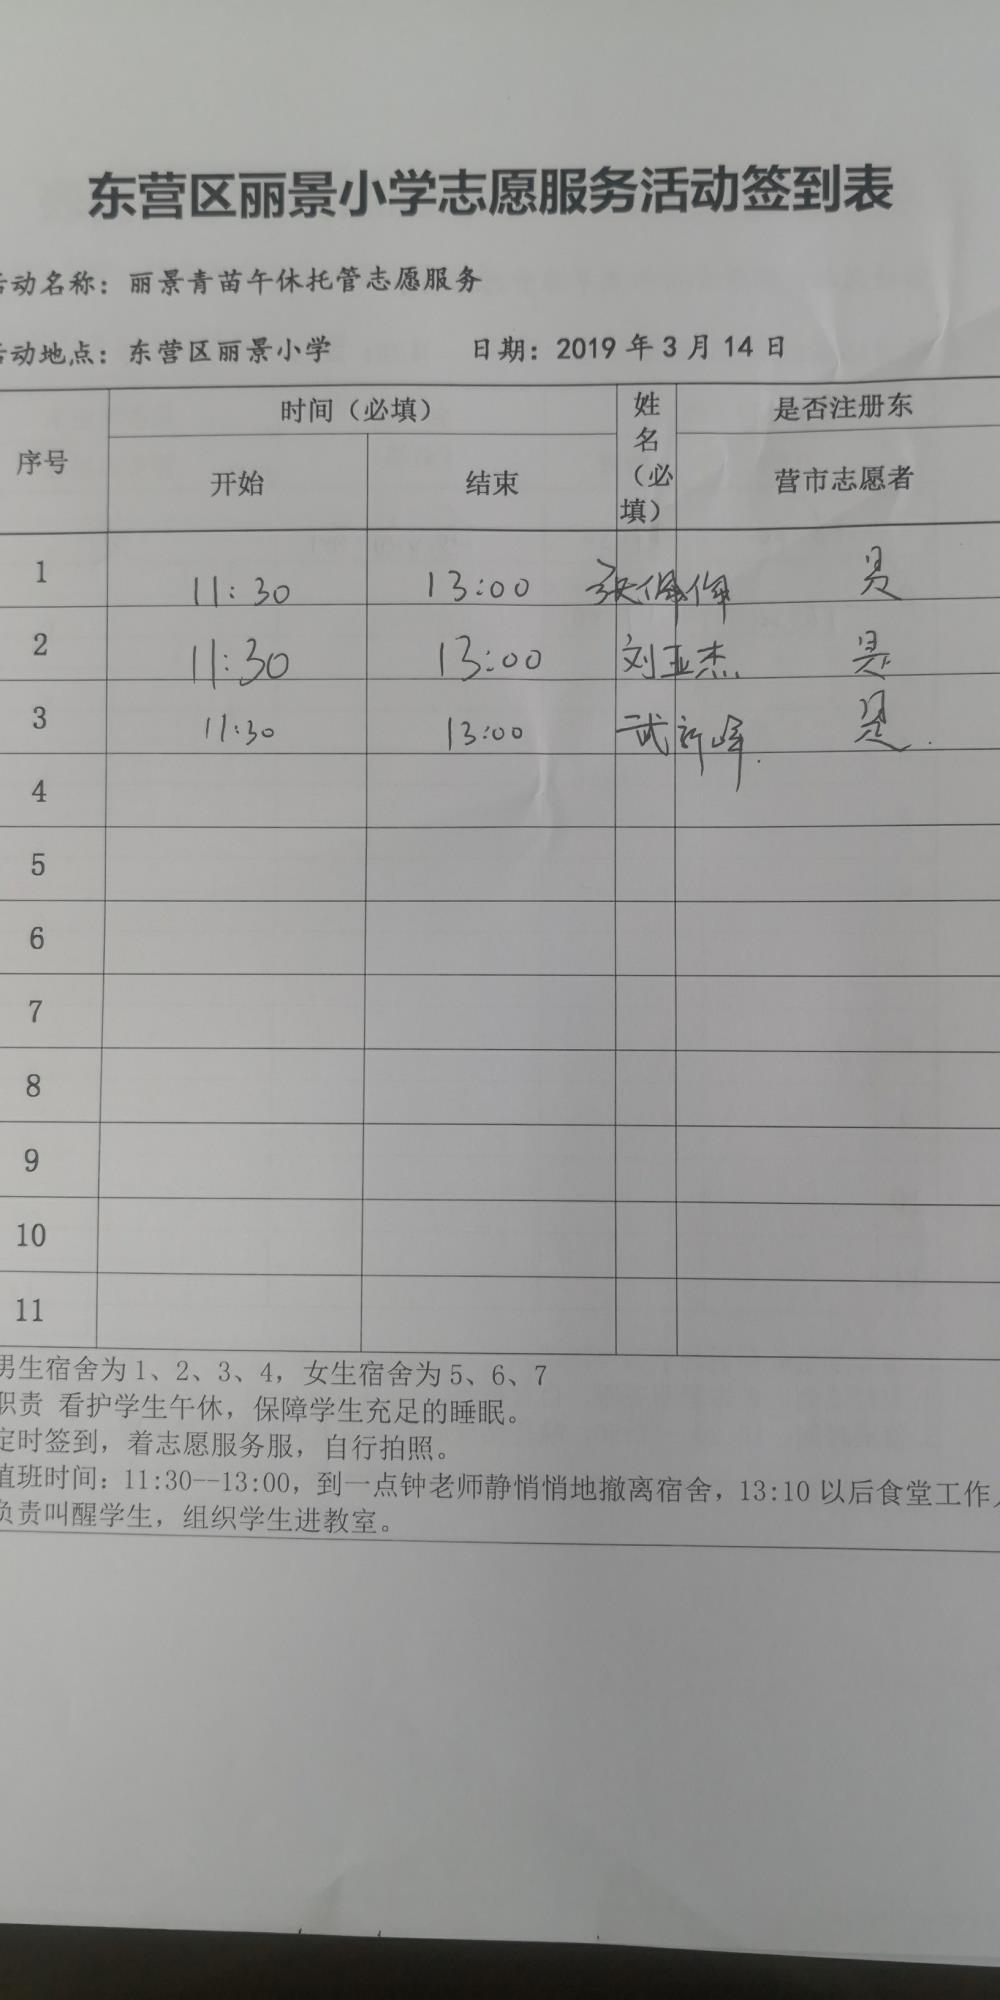 东营区丽景小学志愿服务活动签到表
活动名称：丽景青苗午休托管志愿服务
活动地点：东营区丽景小学 日期：2019 年 3 月 14 日
序号 时间（必填） 开始 结束 姓名（必填） 是否注册东营市志愿者
1 11:30 13:00 张伟伟 是
2 11:30 13:00 刘亚杰 是
3 11:30 13:00 武新峰 是
4
5
6
7
8
9
10
11
男生宿舍为 1、2、3、4，女生宿舍为 5、6、7
职责 看护学生午休，保障学生充足的睡眠。
定时签到，着志愿服务服，自行拍照。
值班时间：11:30--13:00，到一点钟老师静悄悄地撤离宿舍，13:10 以后食堂工作人
负责叫醒学生，组织学生进教室。